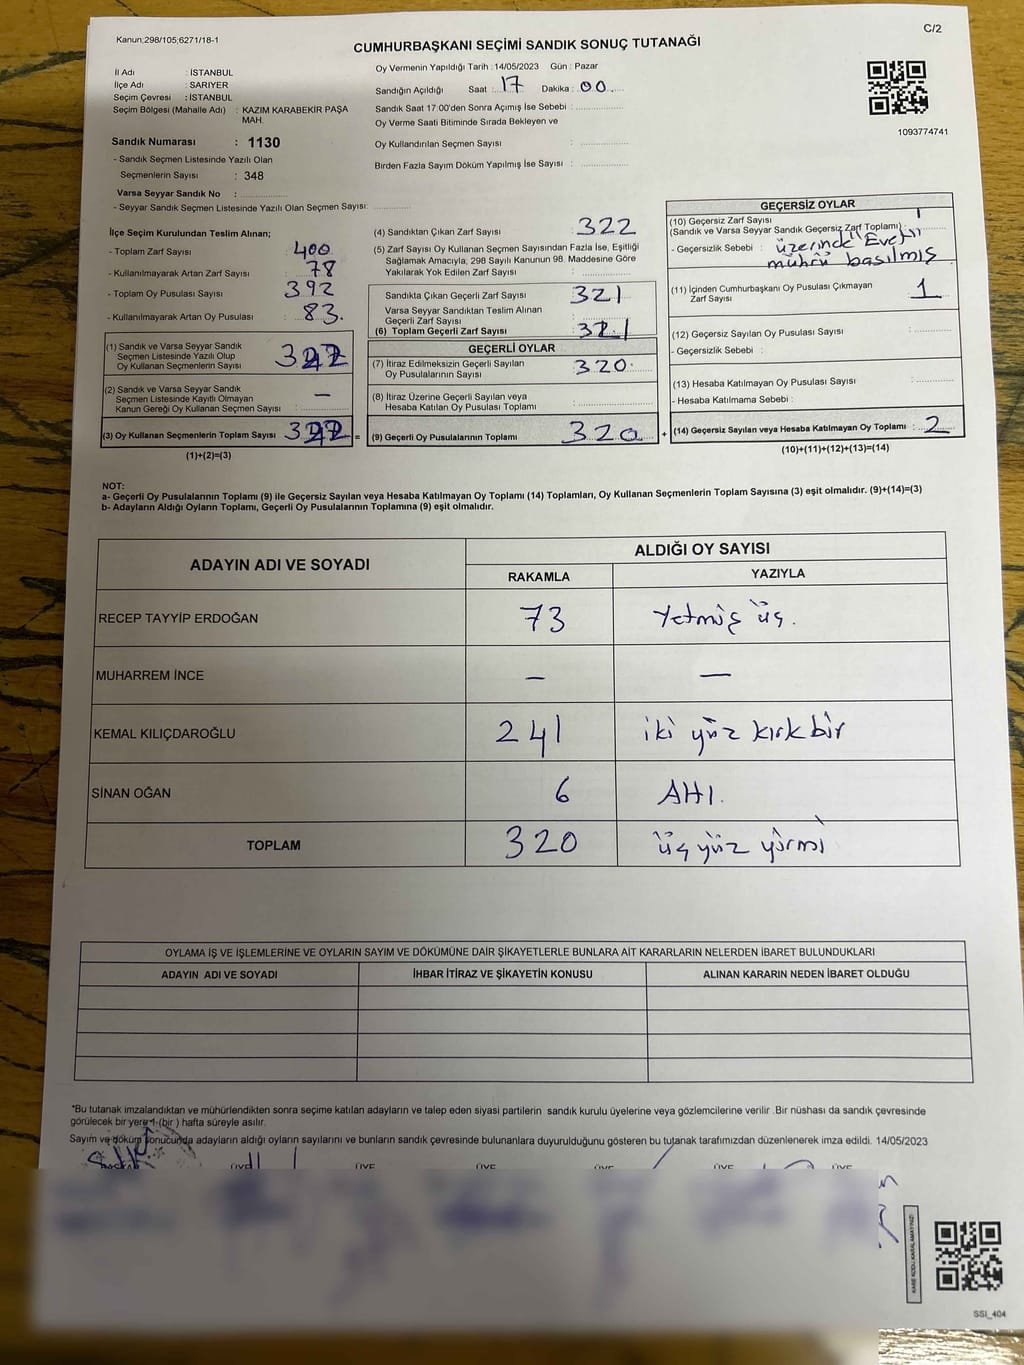 Kanun;298/105;6271/18-1
C/2
CUMHURBAŞKANI SEÇİMİ SANDIK SONUÇ TUTANAĞI
İl Adı : İSTANBUL
İlçe Adı : SARIYER
Seçim Çevresi : İSTANBUL
Seçim Bölgesi (Mahalle Adı) : KAZIM KARABEKİR PAŞA MAH.
Sandık Numarası : 1130
- Sandık Seçmen Listesinde Yazılı Olan
Seçmenlerin Sayısı : 348
Varsa Seyyar Sandık No :
- Seyyar Sandık Seçmen Listesinde Yazılı Olan Seçmen Sayısı:
Oy Vermenin Yapıldığı Tarih : 14/05/2023 Gün : Pazar
Sandığın Açıldığı Saat : 17 Dakika : 00
Sandık Saat 17:00'den Sonra Açımış İse Sebebi :
Oy Verme Saati Bitiminde Sırada Bekleyen ve
Oy Kullandırılan Seçmen Sayısı :
Birden Fazla Sayım Döküm Yapılmış İse Sayısı :
1093774741
İlçe Seçim Kurulundan Teslim Alınan;
- Toplam Zarf Sayısı : 400
- Kullanılmayarak Artan Zarf Sayısı : 78
- Toplam Oy Pusulası Sayısı : 392
- Kullanılmayarak Artan Oy Pusulası : 83.
(1) Sandık ve Varsa Seyyar Sandık
Seçmen Listesinde Yazılı Olup
Oy Kullanan Seçmenlerin Sayısı :
(2) Sandık ve Varsa Seyyar Sandık
Seçmen Listesinde Kayıtlı Olmayan
Kanun Gereği Oy Kullanan Seçmen Sayısı : —
(3) Oy Kullanan Seçmenlerin Toplam Sayısı : =
(1)+(2)=(3)
(4) Sandıktan Çıkan Zarf Sayısı : 322
(5) Zarf Sayısı Oy Kullanan Seçmen Sayısından Fazla İse, Eşitliği
Sağlamak Amacıyla, 298 Sayılı Kanunun 98. Maddesine Göre
Yakılarak Yok Edilen Zarf Sayısı :
Sandıkta Çıkan Geçerli Zarf Sayısı : 321
Varsa Seyyar Sandıktan Teslim Alınan
Geçerli Zarf Sayısı :
(6) Toplam Geçerli Zarf Sayısı : 321
GEÇERLİ OYLAR
(7) İtiraz Edilmeksizin Geçerli Sayılan
Oy Pusulalarının Sayısı : 320
(8) İtiraz Üzerine Geçerli Sayılan veya
Hesaba Katılan Oy Pusulası Toplamı :
(9) Geçerli Oy Pusulalarının Toplamı : 320 +
GEÇERSİZ OYLAR
(10) Geçersiz Zarf Sayısı
(Sandık ve Varsa Seyyar Sandık Geçersiz Zarf Toplamı) : 1
- Geçersizlik Sebebi : üzerinde "Evet"
mührü basılmış
(11) İçinden Cumhurbaşkanı Oy Pusulası Çıkmayan
Zarf Sayısı : 1
(12) Geçersiz Sayılan Oy Pusulası Sayısı :
- Geçersizlik Sebebi :
(13) Hesaba Katılmayan Oy Pusulası Sayısı :
- Hesaba Katılmama Sebebi :
(14) Geçersiz Sayılan veya Hesaba Katılmayan Oy Toplamı : 2
(10)+(11)+(12)+(13)=(14)
NOT:
a- Geçerli Oy Pusulalarının Toplamı (9) ile Geçersiz Sayılan veya Hesaba Katılmayan Oy Toplamı (14) Toplamları, Oy Kullanan Seçmenlerin Toplam Sayısına (3) eşit olmalıdır. (9)+(14)=(3)
b- Adayların Aldığı Oyların Toplamı, Geçerli Oy Pusulalarının Toplamına (9) eşit olmalıdır.
ADAYIN ADI VE SOYADI ALDIĞI OY SAYISI
RAKAMLA YAZIYLA
RECEP TAYYİP ERDOĞAN 73 Yetmiş üç.
MUHARREM İNCE — —
KEMAL KILIÇDAROĞLU 241 iki yüz kırk bir
SİNAN OĞAN 6 AHI.
TOPLAM 320 üç yüz yirmi
OYLAMA İŞ VE İŞLEMLERİNE VE OYLARIN SAYIM VE DÖKÜMÜNE DAİR ŞİKAYETLERLE BUNLARA AİT KARARLARIN NELERDEN İBARET BULUNDUKLARI
ADAYIN ADI VE SOYADI İHBAR İTİRAZ VE ŞİKAYETİN KONUSU ALINAN KARARIN NEDEN İBARET OLDUĞU
*Bu tutanak imzalandıktan ve mühürlendikten sonra seçime katılan adayların ve talep eden siyasi partilerin sandık kurulu üyelerine veya gözlemcilerine verilir .Bir nüshası da sandık çevresinde
görülecek bir yere 1 (bir ) hafta süreyle asılır.
Sayım ve döküm sonucunda adayların aldığı oyların sayılarını ve bunların sandık çevresinde bulunanlara duyurulduğunu gösteren bu tutanak tarafımızdan düzenlenerek imza edildi. 14/05/2023
ÜYE ÜYE ÜYE ÜYE ÜYE ÜYE
KARE KODU KARALAMAYINIZ!
SSI_404